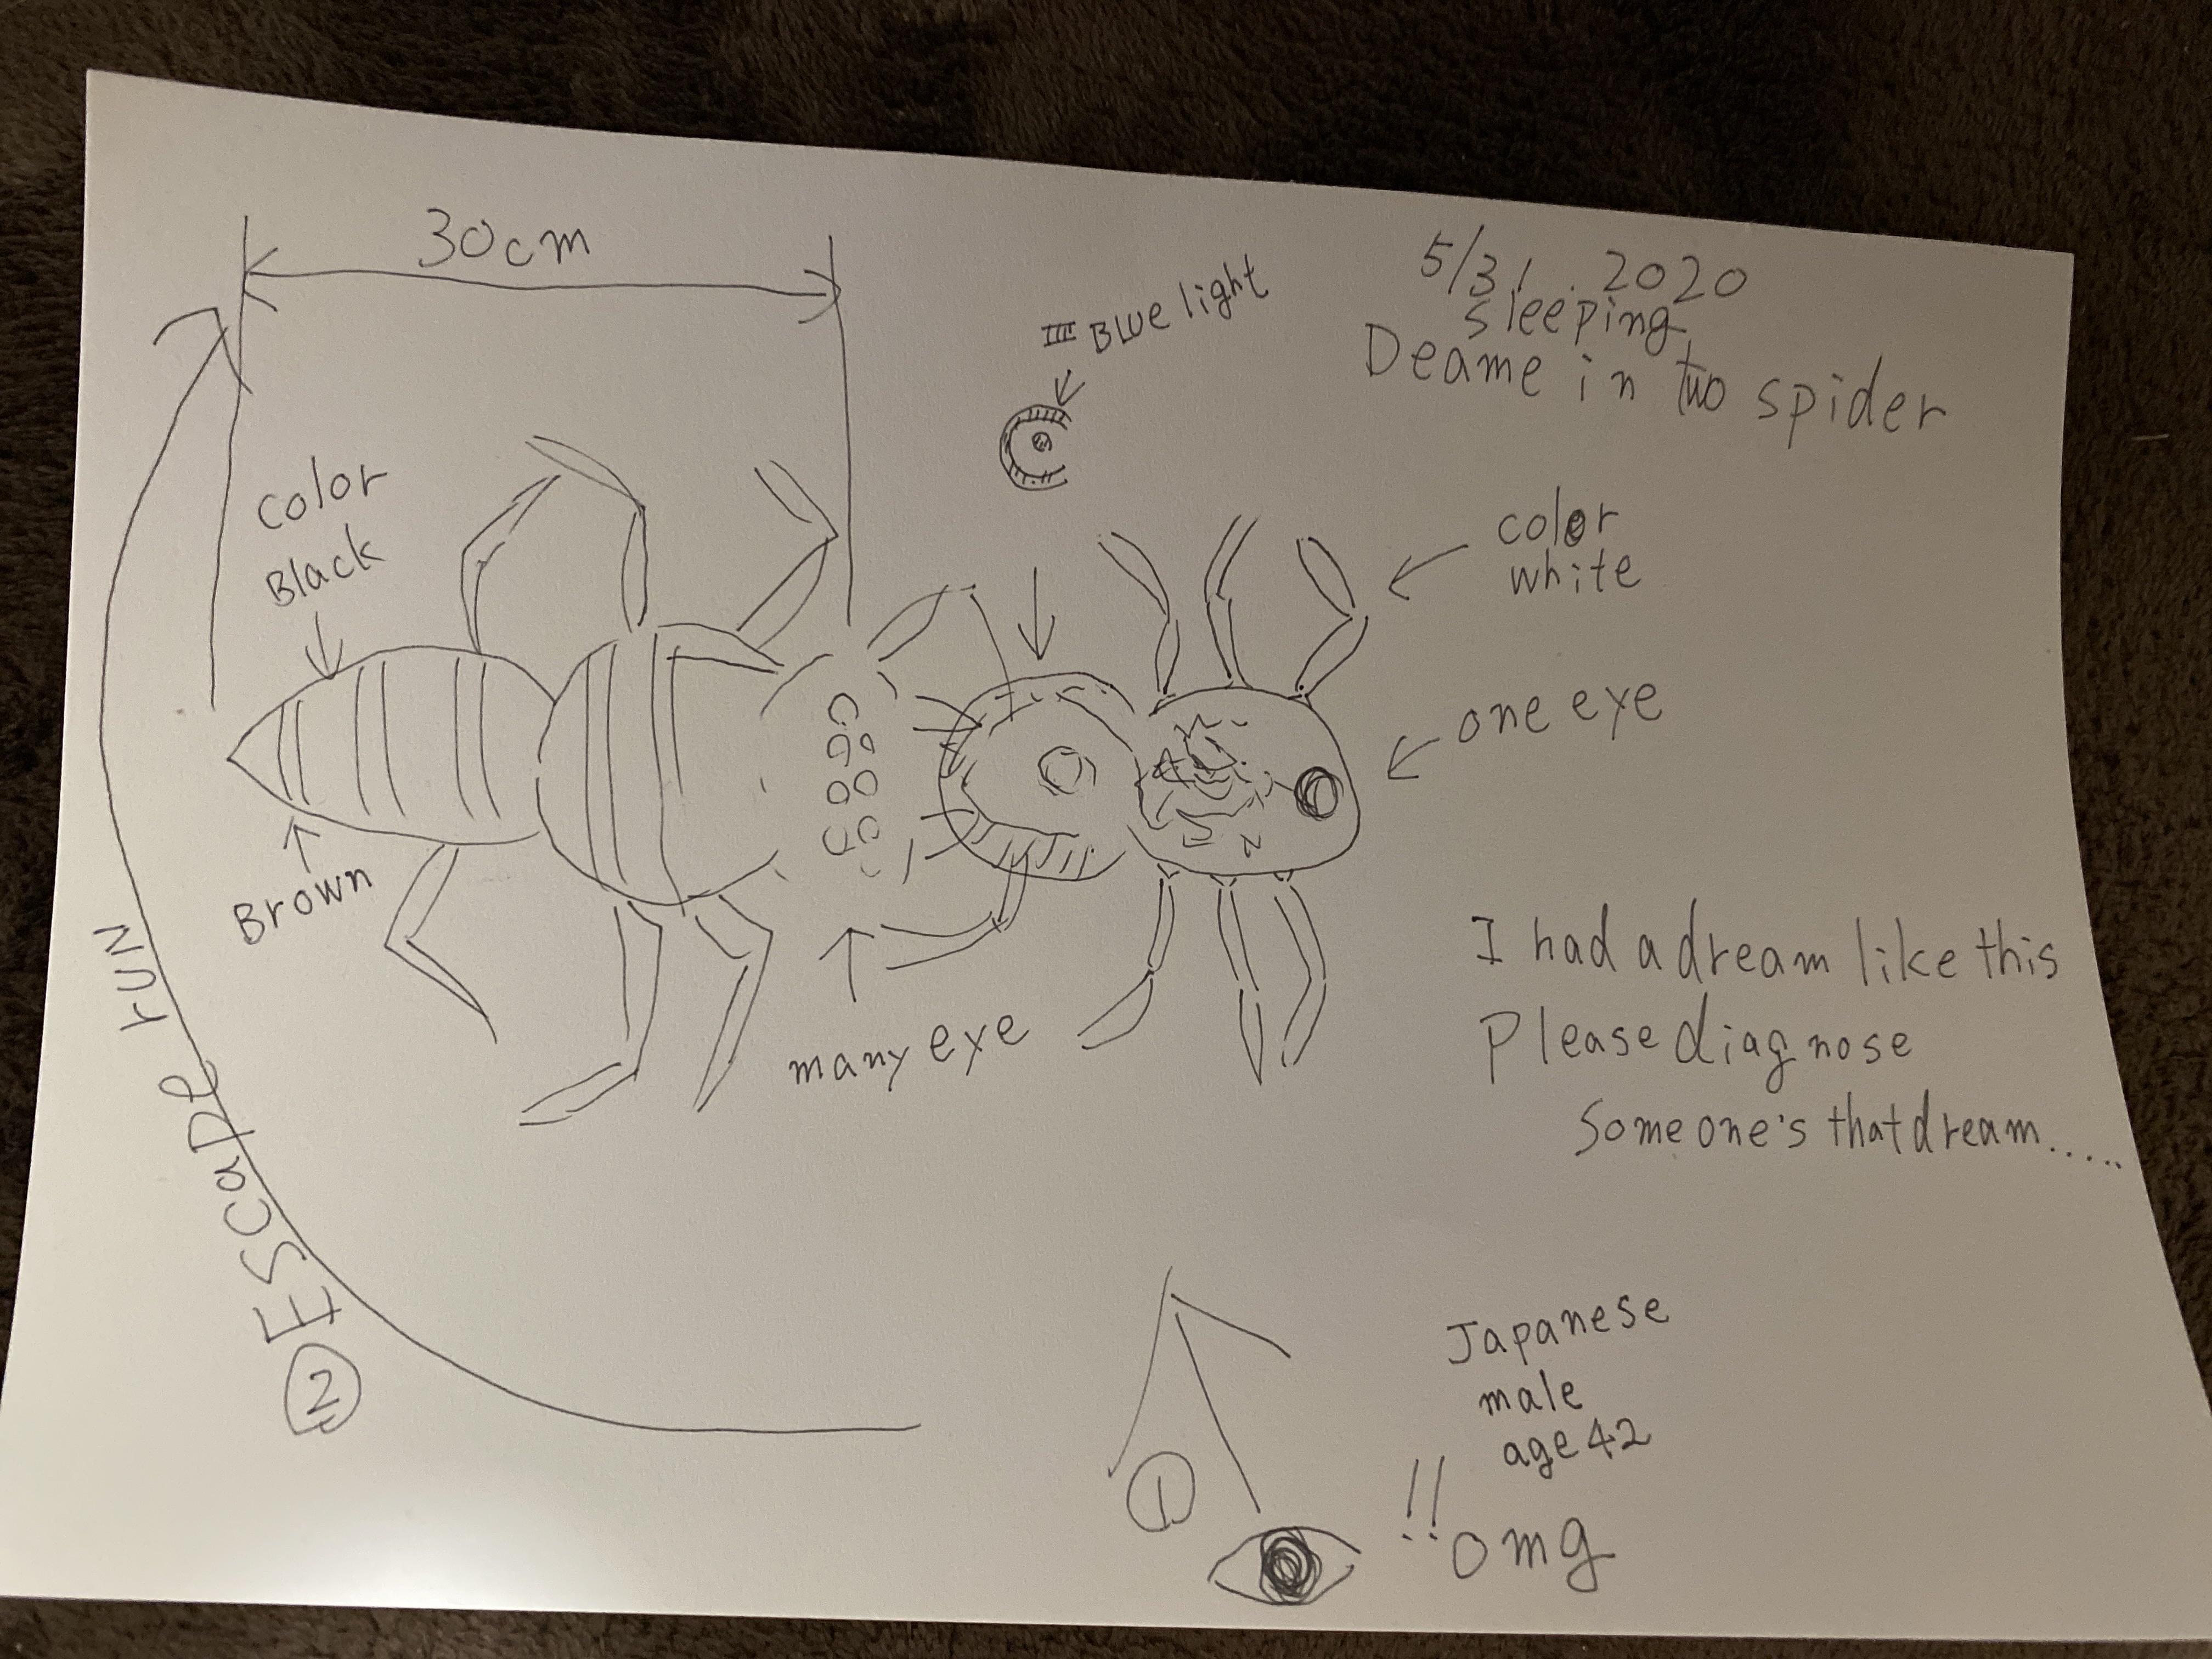 30cm
BLUE light
5/31. 2020
sleeping
Deame in two spider
color
Black
color
white
one eye
Brown
many eye
I had a dream like this
Please diagnose
Someone's that dream.....
② Escape run
①
Japanese
male
age 42
!! omg